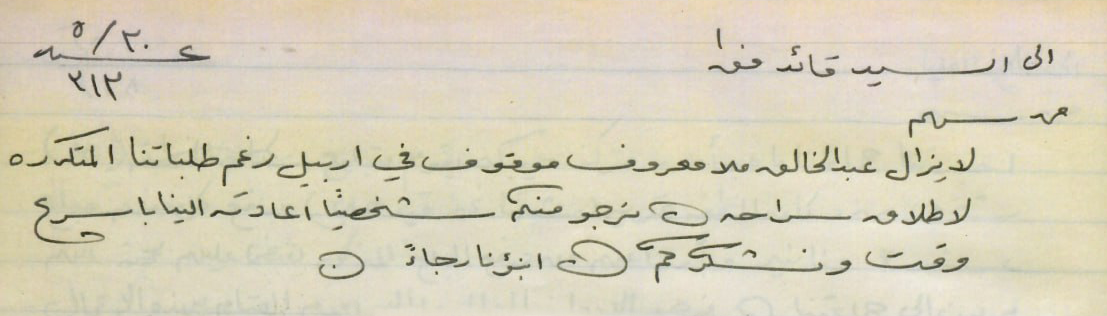 الى السيد قائد فق١
٢٠/٥
٣١٣
من سهم
لا يزال عبدالخالق ملا معروف موقوف في اربيل رغم طلباتنا المتكرره
لاطلاق سراحه ن نرجو منكم شخصيًا اعادته الينا باسرع
وقت ونشكركم ن انبؤنا رجاءً ن